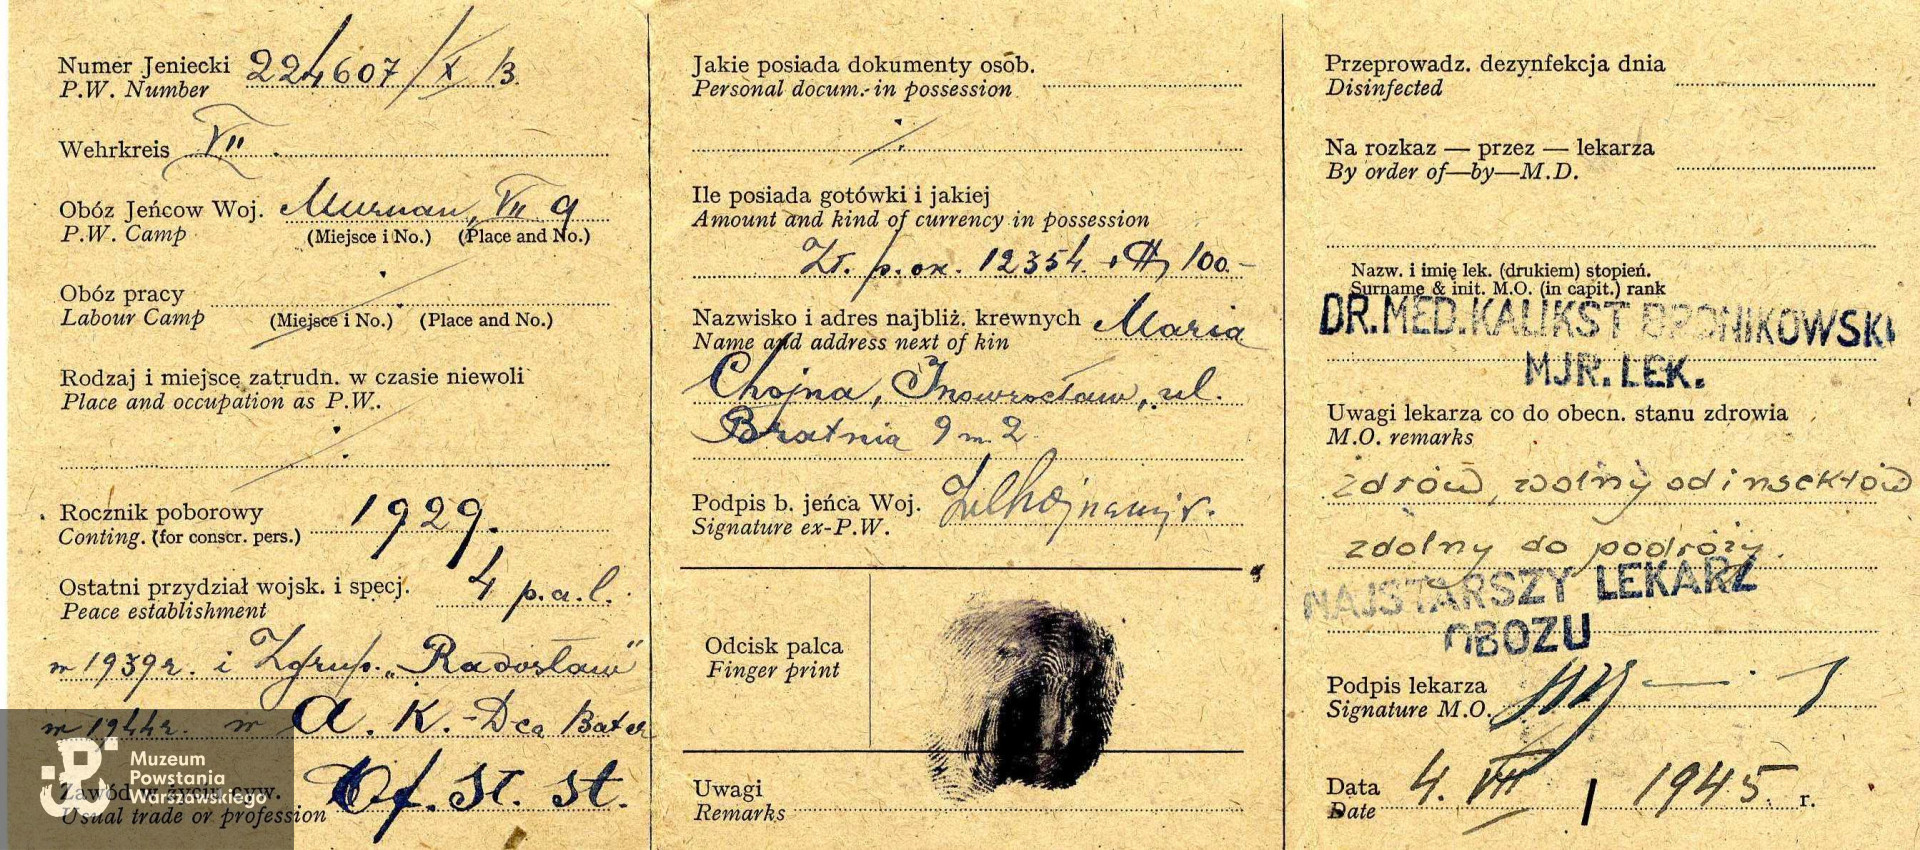 Numer Jeniecki 224607/X B.
P.W. Number
Wehrkreis VII
Obóz Jeńcow Woj. Murnau, VII a
P.W. Camp (Miejsce i No.) (Place and No.)
Obóz pracy
Labour Camp (Miejsce i No.) (Place and No.)
Rodzaj i miejsce zatrudn. w czasie niewoli
Place and occupation as P.W.
Rocznik poborowy 1929.
Conting. (for conscr. pers.)
Ostatni przydział wojsk. i specj. 4 p.a.l.
Peace establishment
w 1939r. i Zgrup. „Radosław”
w 1944r. w A. K. - Dca Bater
Zawód w życiu cyw. Of. st. st.
Usual trade or profession
Muzeum
Powstania
Warszawskiego
Jakie posiada dokumenty osób.
Personal docum. in possession
Ile posiada gotówki i jakiej
Amount and kind of currency in possession
Zł. p. ok. 12354. + 100.-
Nazwisko i adres najbliż. krewnych Maria
Name and address next of kin
Chojna, Inowrocław, ul.
Bratnia 9 m. 2
Podpis b. jeńca Woj.
Signature ex-P.W.
Odcisk palca
Finger print
Uwagi
Remarks
Przeprowadz. dezynfekcja dnia
Disinfected
Na rozkaz — przez — lekarza
By order of—by—M.D.
Nazw. i imię lek. (drukiem) stopień.
Surname & init. M.O. (in capit.) rank
DR. MED. KALIKST BRONIKOWSKI
MJR. LEK.
Uwagi lekarza co do obecn. stanu zdrowia
M.O. remarks
zdrów, wolny od insektów
zdolny do podróży.
NAJSTARSZY LEKARZ
OBOZU
Podpis lekarza
Signature M.O.
Data 4. VII 1945 r.
Date